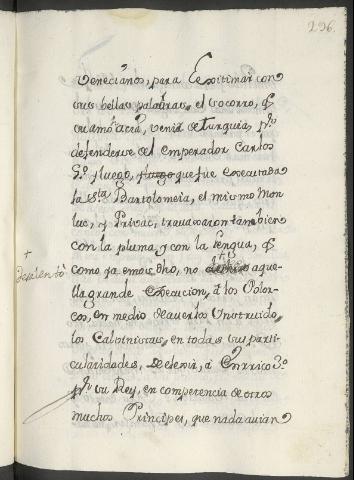 296.
venecianos, para Lexitimar con
sus bellas palabras, el socorro, q̃
su amo acia, venir de turquia, pᵃ
defenderse del emperador Carlos
5º. y luego, que fue executada
la Sᵗᵃ Bartolomeia, el mismo Mon
luc, y Privac, travaxaron tambien
con la pluma, y con la Lengua, q̃
como ya emos dho, no aque-
lla grande execucion, á los Polor-
cos, en medio de averlos Ynstruido,
los Calvinistas, en todas sus parti-
cularidades, de elexir, á Enrrico 3º.
pʳ su Rey, en comperencia de otros
muchos Principes, que nada avian